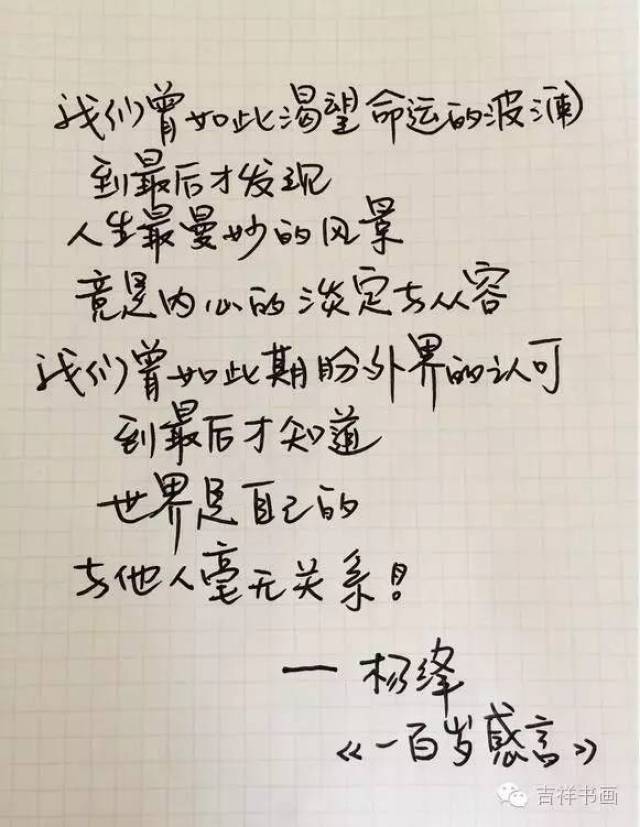 我们曾如此渴望命运的波澜
到最后才发现
人生最曼妙的风景
竟是内心的淡定与从容
我们曾如此期盼外界的认可
到最后才知道
世界是自己的
与他人毫无关系！
— 杨绛
《一百岁感言》
吉祥书画